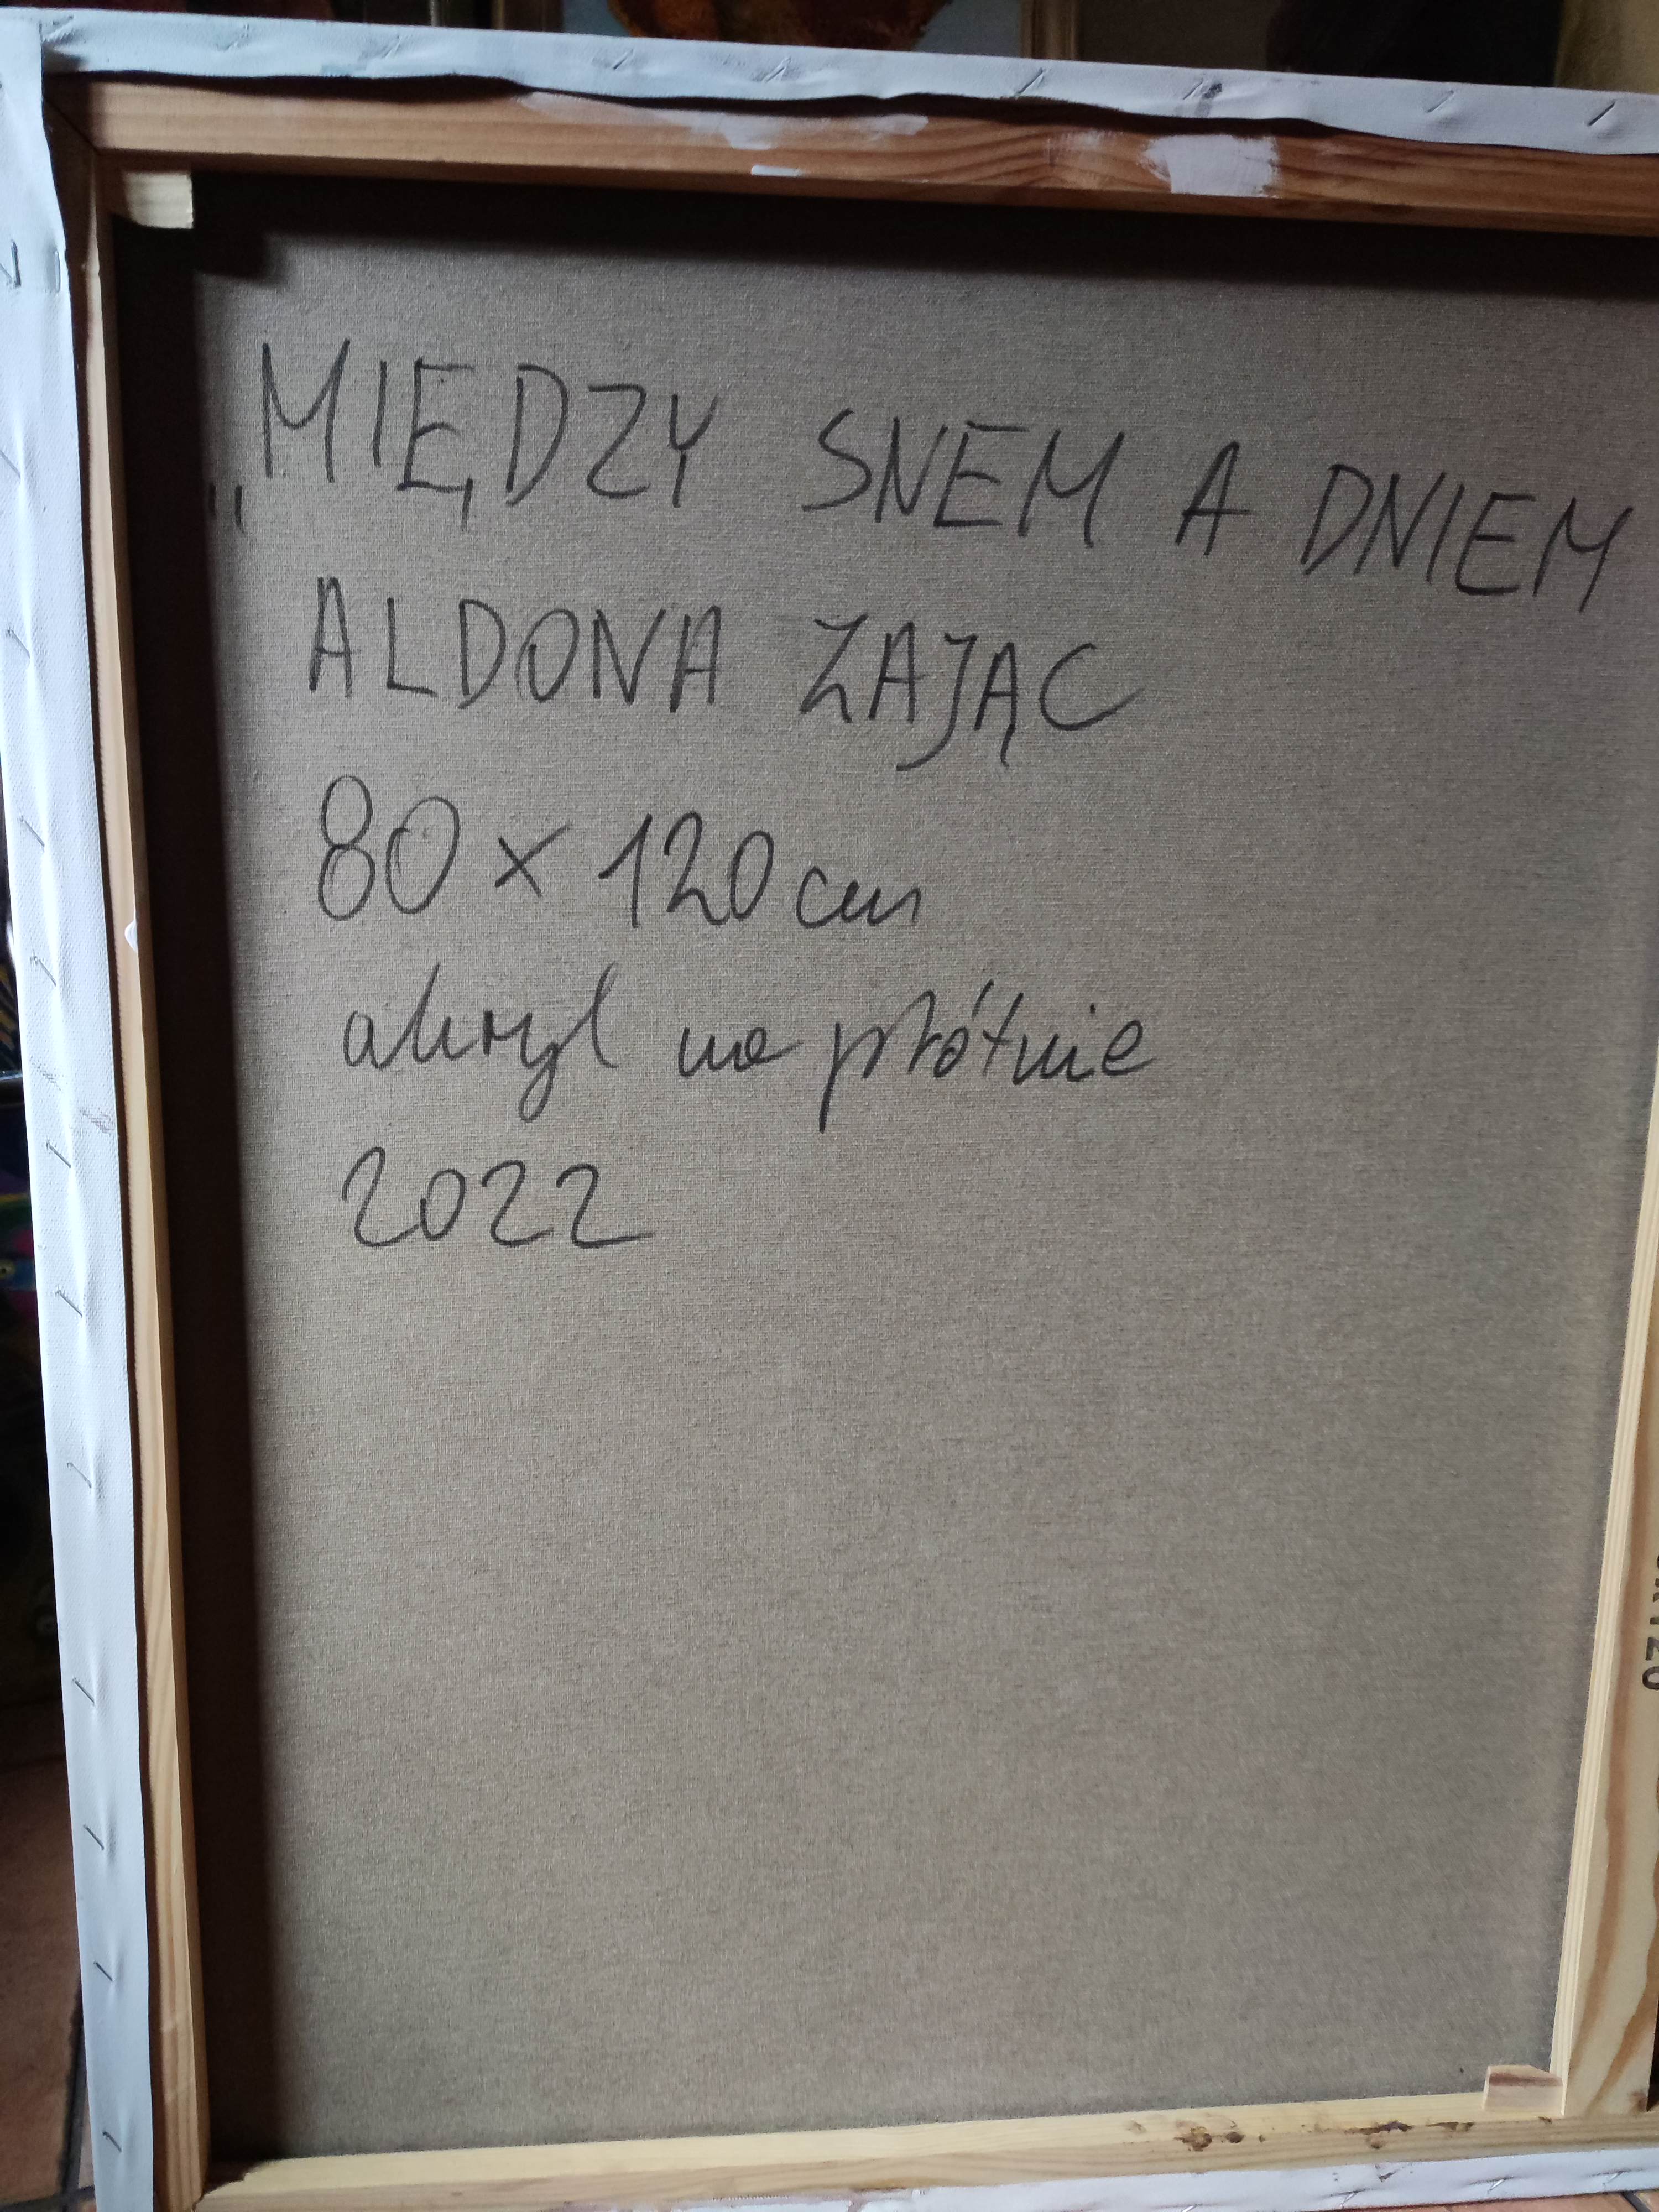 „MIĘDZY SNEM A DNIEM
ALDONA ZAJĄC
80 x 120 cm
akryl na płótnie
2022